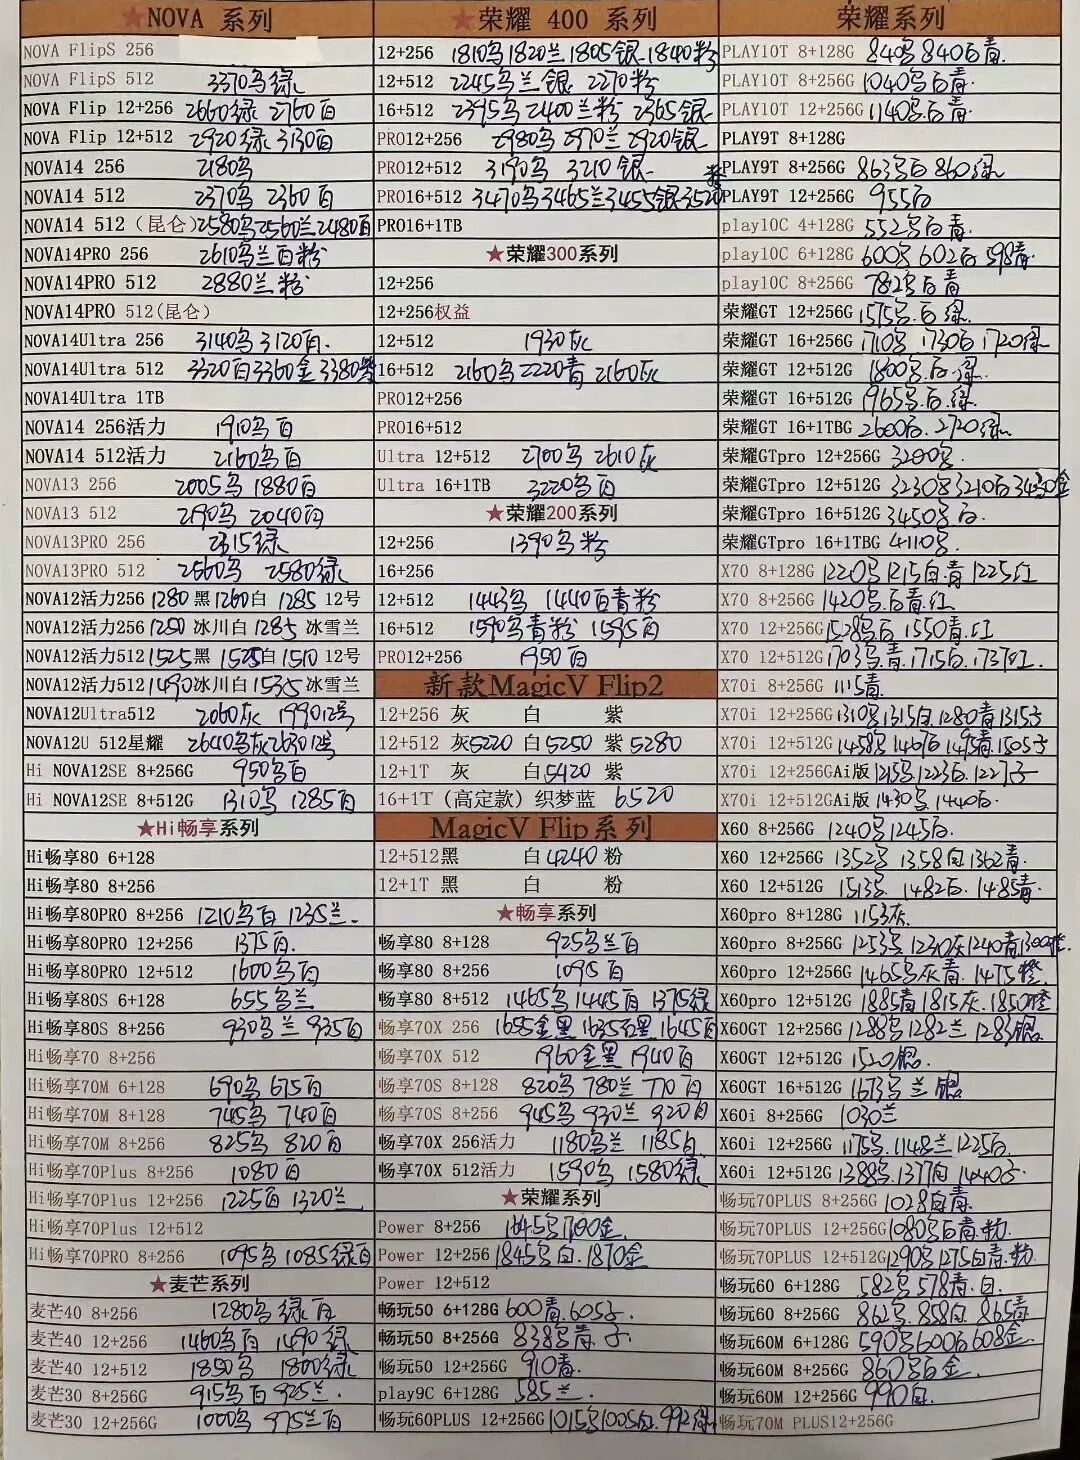 ★NOVA 系列
NOVA FlipS 256
NOVA FlipS 512 3370乌绿
NOVA Flip 12+256 2660绿 2760白
NOVA Flip 12+512 2920绿 3130白
NOVA14 256 2180乌
NOVA14 512 2370乌 2360白
NOVA14 512（昆仑）2580乌2560兰2480白
NOVA14PRO 256 2610乌兰白粉
NOVA14PRO 512 2880兰粉
NOVA14PRO 512(昆仑)
NOVA14Ultra 256 3140乌 3120白.
NOVA14Ultra 512 3320白3360金3380紫
NOVA14Ultra 1TB
NOVA14 256活力 1910乌白
NOVA14 512活力 2160乌白
NOVA13 256 2005乌 1880白
NOVA13 512 2190乌 2040白
NOVA13PRO 256 2315绿
NOVA13PRO 512 2560乌 2580绿
NOVA12活力256 1280黑 1260白 1285 12号
NOVA12活力256 1250 冰川白 1285 冰雪兰
NOVA12活力512 1525黑 1525白 1510 12号
NOVA12活力512 1490冰川白 1535 冰雪兰
NOVA12Ultra512 2060灰 1990 12号
NOVA12U 512星耀 2640乌灰2630 12号
Hi NOVA12SE 8+256G 950乌白
Hi NOVA12SE 8+512G 1310乌 1285白
★Hi畅享系列
Hi畅享80 6+128
Hi畅享80 8+256
Hi畅享80PRO 8+256 1210乌白 1235兰.
Hi畅享80PRO 12+256 1375白.
Hi畅享80PRO 12+512 1600乌白
Hi畅享80S 6+128 655乌兰
Hi畅享80S 8+256 930乌兰 935白
Hi畅享70 8+256
Hi畅享70M 6+128 690乌 675白
Hi畅享70M 8+128 745乌 740白
Hi畅享70M 8+256 825乌 820白
Hi畅享70Plus 8+256 1080白
Hi畅享70Plus 12+256 1225白 1320兰
Hi畅享70Plus 12+512
Hi畅享70PRO 8+256 1095乌1085绿白
★麦芒系列
麦芒40 8+256 1280乌绿白
麦芒40 12+256 1460乌白 1490绿
麦芒40 12+512 1850乌 1800绿
麦芒30 8+256G 915乌白 925兰.
麦芒30 12+256G 1000乌 975兰白
★荣耀 400 系列
12+256 1810乌1820兰1805银1840粉
12+512 2245乌兰银 2270粉
16+512 2395乌2400兰粉 2365银
PRO12+256 2980乌2970兰2920银
PRO12+512 3190乌 3210银
PRO16+512 3470乌3465兰3455银3520粉
PRO16+1TB
★荣耀300系列
12+256
12+256权益
12+512 1930灰
16+512 2160乌2220青 2160灰
PRO12+256
PRO16+512
Ultra 12+512 2700乌 2610灰
Ultra 16+1TB 3220乌白
★荣耀200系列
12+256 1390乌粉
16+256
12+512 1443乌 1440白青粉
16+512 1590乌青粉 1595白
PRO12+256 1950白
新款MagicV Flip2
12+256 灰 白 紫
12+512 灰5220 白5250 紫5280
12+1T 灰 白5420 紫
16+1T（高定款）织梦蓝 6520
MagicV Flip系列
12+512黑 白4240 粉
12+1T 黑 白 粉
★畅享系列
畅享80 8+128 925乌兰白
畅享80 8+256 1095白
畅享80 8+512 1465乌1445白 1375绿
畅享70X 256 1655金黑1635石黑1645白
畅享70X 512 1960金黑 1940白
畅享70S 8+128 820乌 780兰 770白
畅享70S 8+256 945乌 930兰 920白
畅享70X 256活力 1180乌兰 1185白
畅享70X 512活力 1590乌 1580绿
★荣耀系列
Power 8+256 1645乌1700金
Power 12+256 1845乌白.1870金
Power 12+512
畅玩50 6+128G 600青.605子.
畅玩50 8+256G 838乌青子
畅玩50 12+256G 910青.
play9C 6+128G 585兰.
畅玩60PLUS 12+256G1015乌1005白.992绿
荣耀系列
PLAY10T 8+128G 840乌840白青.
PLAY10T 8+256G 1040乌白青.
PLAY10T 12+256G1140乌白青.
PLAY9T 8+128G
PLAY9T 8+256G 863乌白860绿
PLAY9T 12+256G 955白
play10C 4+128G 552乌白青.
play10C 6+128G 600乌 602白 598青.
play10C 8+256G 782乌白青
荣耀GT 12+256G 1575乌.白.绿
荣耀GT 16+256G 1710乌 1730白 1720绿
荣耀GT 12+512G 1800乌.白.绿
荣耀GT 16+512G 1965乌.白.绿.
荣耀GT 16+1TBG 2600白.2720绿
荣耀GTpro 12+256G 3200乌.
荣耀GTpro 12+512G 3230乌3210白3430金
荣耀GTpro 16+512G 3450乌白.
荣耀GTpro 16+1TBG 4110乌.
X70 8+128G 1220乌1215白.青1225红
X70 8+256G 1420乌.白青.红
X70 12+256G 1528乌白 1550青.红
X70 12+512G 1703乌青.1715白.1737红.
X70i 8+256G 1115青.
X70i 12+256G1310乌1315白1280青1315子
X70i 12+512G 1458乌1467白1495青.1505子
X70i 12+256GAi版 1215乌1223白.1227子
X70i 12+512GAi版 1430乌1440白.
X60 8+256G 1240乌1245白.
X60 12+256G 1352乌 1358白1362青.
X60 12+512G 1513乌. 1482白. 1485青.
X60pro 8+128G 1153灰.
X60pro 8+256G 1253乌.1230灰1240青1300橙.
X60pro 12+256G 1465乌灰青.1475橙.
X60pro 12+512G 1885青1815灰.1850橙
X60GT 12+256G 1288乌 1282兰 1283银.
X60GT 12+512G 1520银.
X60GT 16+512G 1673乌兰银.
X60i 8+256G 1030兰
X60i 12+256G 1175乌.1148兰1225白.
X60i 12+512G 1388乌.1377白1440子.
畅玩70PLUS 8+256G1028白青.
畅玩70PLUS 12+256G1080乌白青.粉.
畅玩70PLUS 12+512G1290乌1275白青.粉.
畅玩60 6+128G 582乌578青.白.
畅玩60 8+256G 862乌.858白.865青
畅玩60M 6+128G 590乌600白608金.
畅玩60M 8+256G 860乌白金.
畅玩60M 12+256G 990白.
畅玩70M PLUS12+256G